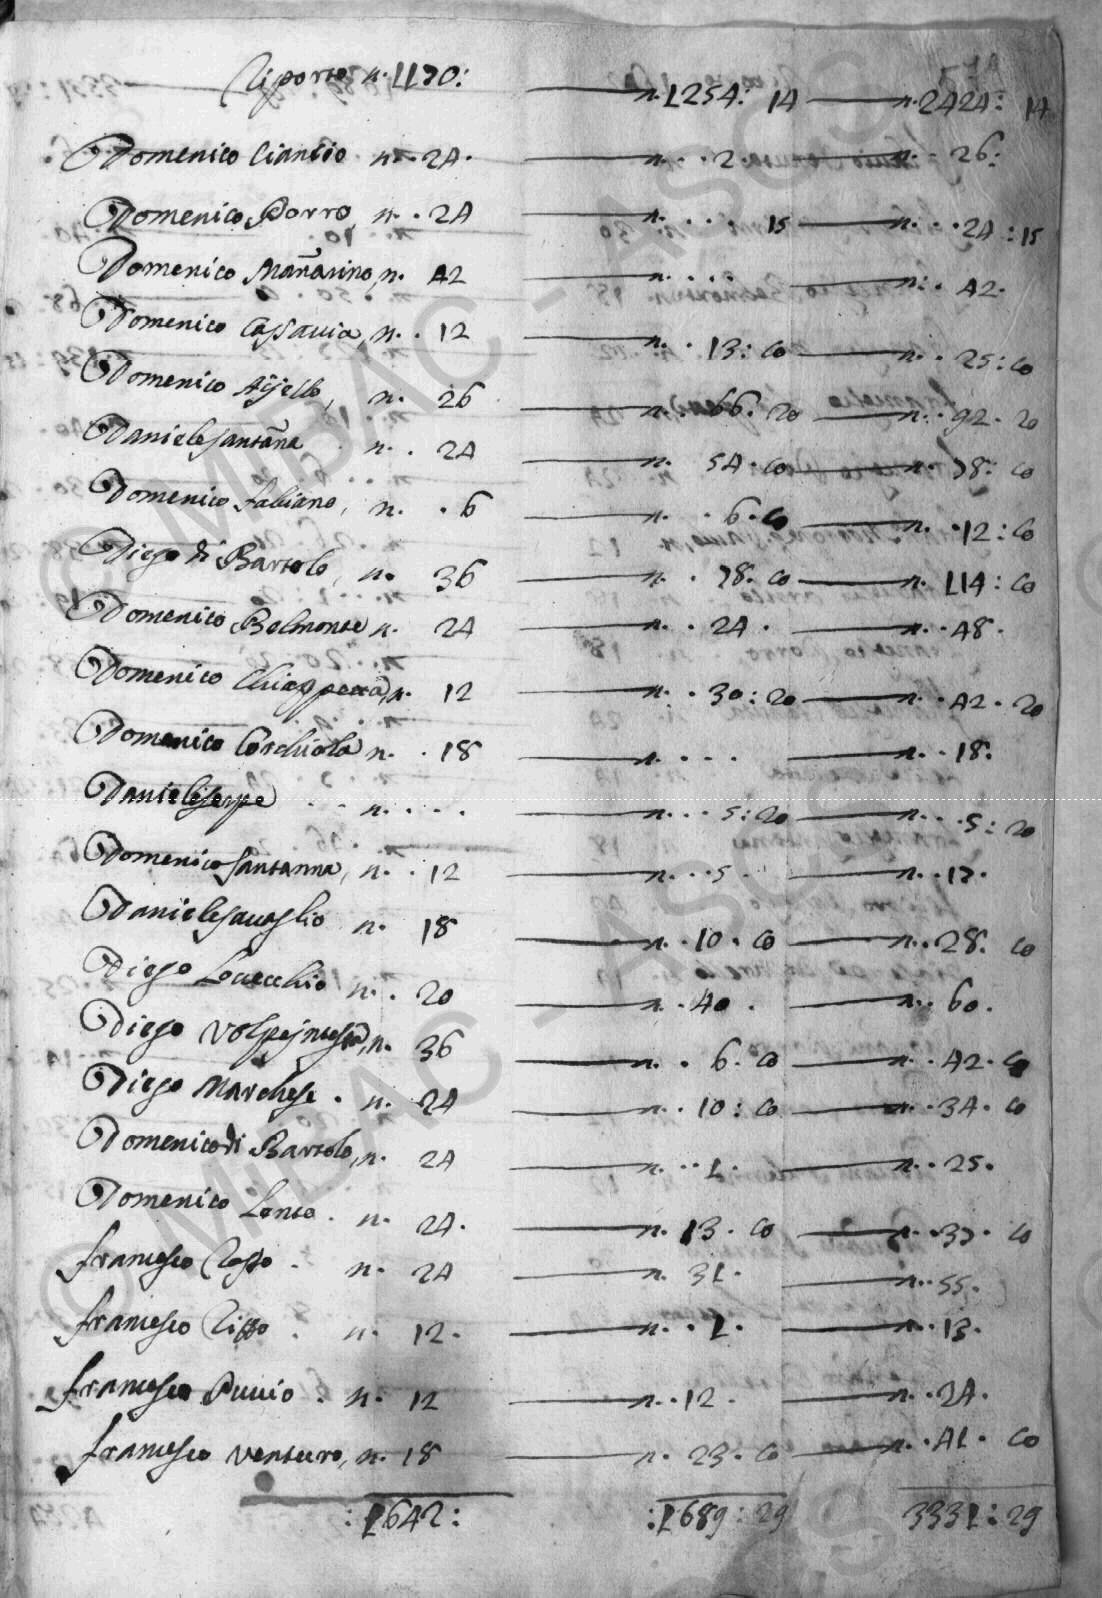 Riporto n. 1170: n. 1254: 14 n. 2424: 14
Domenico Ciancio n. 24. n. . 2. n. . 26:
Domenico Porro, n. . 24 n. . . . 15 n. . . 24 : 15
Domenico Mañarino, n. 42 n. . . . n. . 42.
Domenico Cassavia, n. . 12 n. . 13: co n. . 25: co
Domenico Aijello, n. 26 n. 66. 20 n. . 92. 20
Daniele Santãna n. . 24 n. 54. co n. 78. co
Domenico fabiano, n. . 6 n. . 6. co n. . 12: co
Diego di Bartolo, n. 36 n. . 78. co n. 114: co
Domenico Belmonte n. 24 n. . 24. n. . 48.
Domenico Chiappetta, n. 12 n. . 30: 20 n. . 42. 20
Domenico Corchiola n. . 18 n. . . . n. . 18.
Daniele Serpe . . n. . . . n. . . 5: 20 n. . . 5: 20
Domenico Santanna, n. . 12 n. . . 5 . n. . 17.
Daniele Savaglio n. 18 n. . 10. co n. . 28. co
Diego Lovecchio n. . 20 n. . 40. n. . 60.
Diego Volpejntesta, n. 36 n. . 6. co n. . 42. co
Diego Marchese . n. 24 n. . 10: co n. . 34. co
Domenico di Bartolo, n. 24 n. . . 1. n. . 25.
Domenico Lento . n. 24. n. 13. co n. . 37. co
francesco Rosso . n. 24 n. 31. n. . 55.
francesco Rizzo . n. 12. n. . 1. n. . 13.
francesco Puuio . n. 12 n. . 12. n. . 24.
francesco Venturo, n. 18 n. 23. co n. . 41. co
: 1642: : 1689: 29 3331: 29
© MIBAC - ASCS
© MIBAC - ASCS